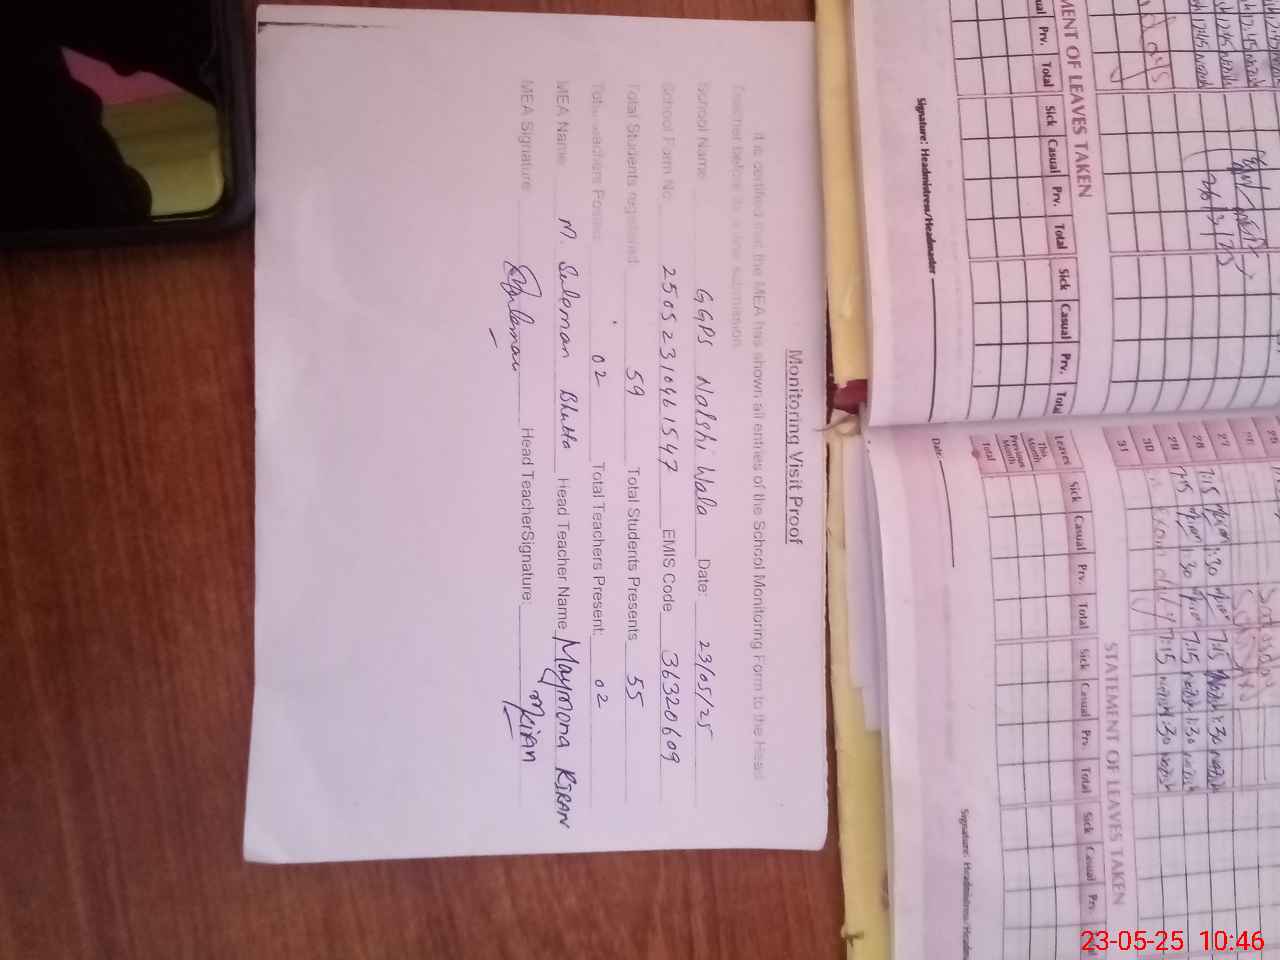 Monitoring Visit Proof
It is certified that the MEA has shown all entries of the School Monitoring Form to the Head
Teacher before its online submission.
School Name: GGPS Nolshi Wala Date: 23/05/25
School Form No. 25052310461547 EMIS Code 36320609
Total Students registered: 59 Total Students Presents 55
Total Teachers Posted: 02 Total Teachers Present: 02
MEA Name: M. Suleman Bhutta Head Teacher Name Maymona KIRAN
MEA Signature: Suleman Head TeacherSignature: mkiran
MENT OF LEAVES TAKEN
Prv. Total Sick Casual Prv. Total Sick Casual Prv. Total
Signature: Headmistress/Headmaster
27 7:15 1:30 7:15 1:30
28 7:15 1:30 7:15 1:30
29 7:15 1:30
30
31
STATEMENT OF LEAVES TAKEN
Leaves Sick Casual Prv. Total Sick Casual Prv. Total Sick Casual Prv.
This Month
Previous Month
Total
Date:
Signature: Headmistress/Headm
23-05-25 10:46